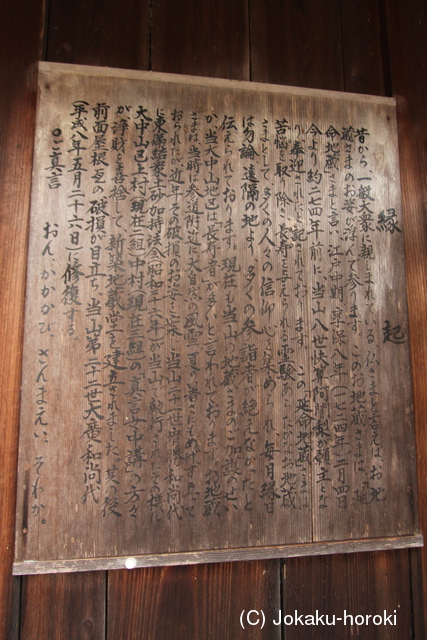 縁起
昔から一般大衆に親しまれている仏さまと言えば、お地
蔵さまのお姿が浮んで参ります。このお地蔵さまは、延
命地蔵さまと言い江戸中期、享保八年(一七二四年)二月四日
今より約二七四年前に当山八世快算阿闍梨が願主とな
り奉迎されたと記されております。この延命地蔵さまは
苦悩を取り除き長寿を与えられる霊験あらたかなお地蔵
さまとして多くの人々の信仰心を集められ、毎月縁日
は勿論遠隔の地より多くの参詣者が絶えなかったと
伝えられております。現在も当山お地蔵さまのご加護のせい
か、当大中山地区は長寿者が多いと言われております。お地蔵
さまは当時に参道附近に大自然の風雪夏の暑さにもめげず立って
おられたが近年その破損のお姿を
に東海結衆土砂加持法会昭和 十六年が当山で執行されたその様に
大中山区上村(現在一組)中村(現在二組)の真言女中講の方々
が浄財を喜捨して新築地蔵堂を建立されました。其の後
前面屋根迄の破損が目立ち、当山第二十二世大廣和尚代
(平成八年五月二十六日)に修復する。
○ご真言
おん、かかかび、さんまえい、そわか。
(C) Jokaku-horoki